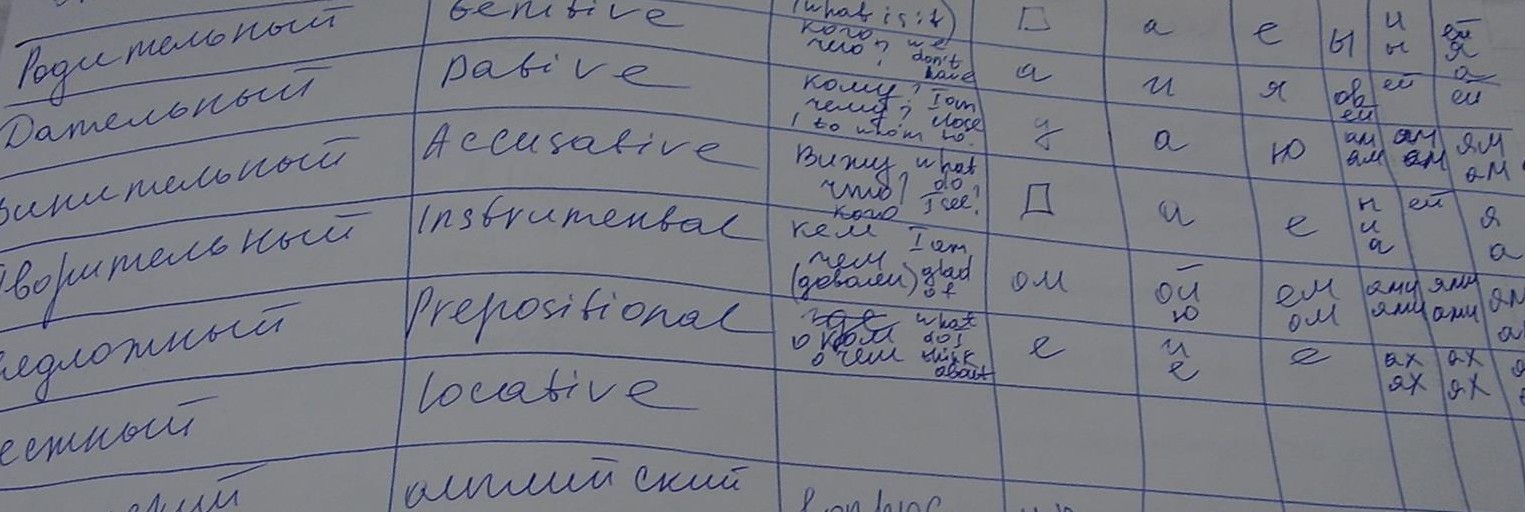 Genitive (what is it) □ а е ы и ей
Родительный кого, we н я
чего, don't have а
Dative а и я ов ей ей
Дательный кому, I am ей
чему, close
to whom у а ю ам ам ям
Accusative ам ам ам
Винительный Вижу what
что, do □ и е н ей я
кого I see? и
Instrumental кем I am а а
Творительный чем glad
(доволен) of ом ой ем ями ями
ю ом ями ами
Prepositional где what
едложный о ком do I е и е ах ах
о чем think about е ях ях
Locative
естный
английский